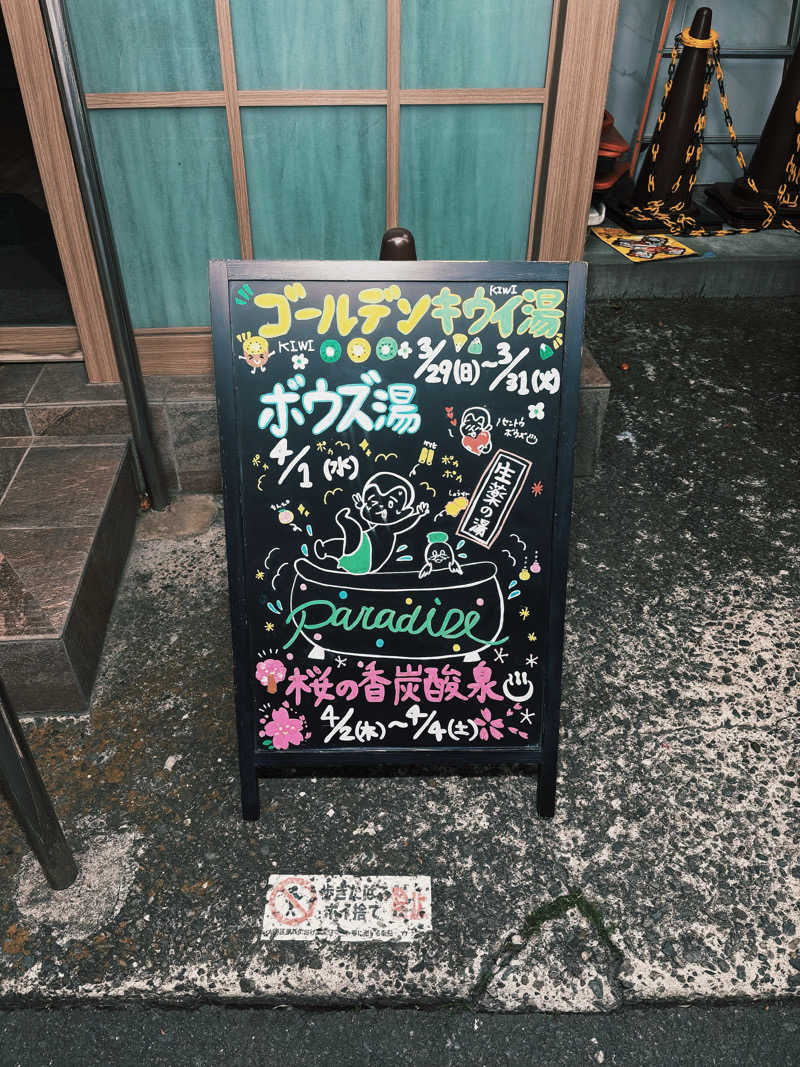 KIWI
ゴールデンキウイ湯
KIWI
3/29(日)〜3/31(火)
ボウズ湯
4/1(水)
ポカ
ポカ
mt
ポカ
ポカ
しょうが
生薬の湯
paradise
桜の香炭酸泉
4/2(木)〜4/4(土)
歩きたばこ
ポイ捨て
禁止